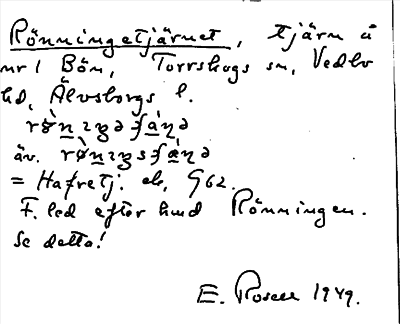 Rönningetjärnet, tjärn å
nr 1 Bön, Torrskogs sn, Vedbo
hd, Älvsborgs l.
äv.
= Hafretj. ek, G62.
F. led efter hmd Rönningen.
Se detta!
E. Rosell 1949.